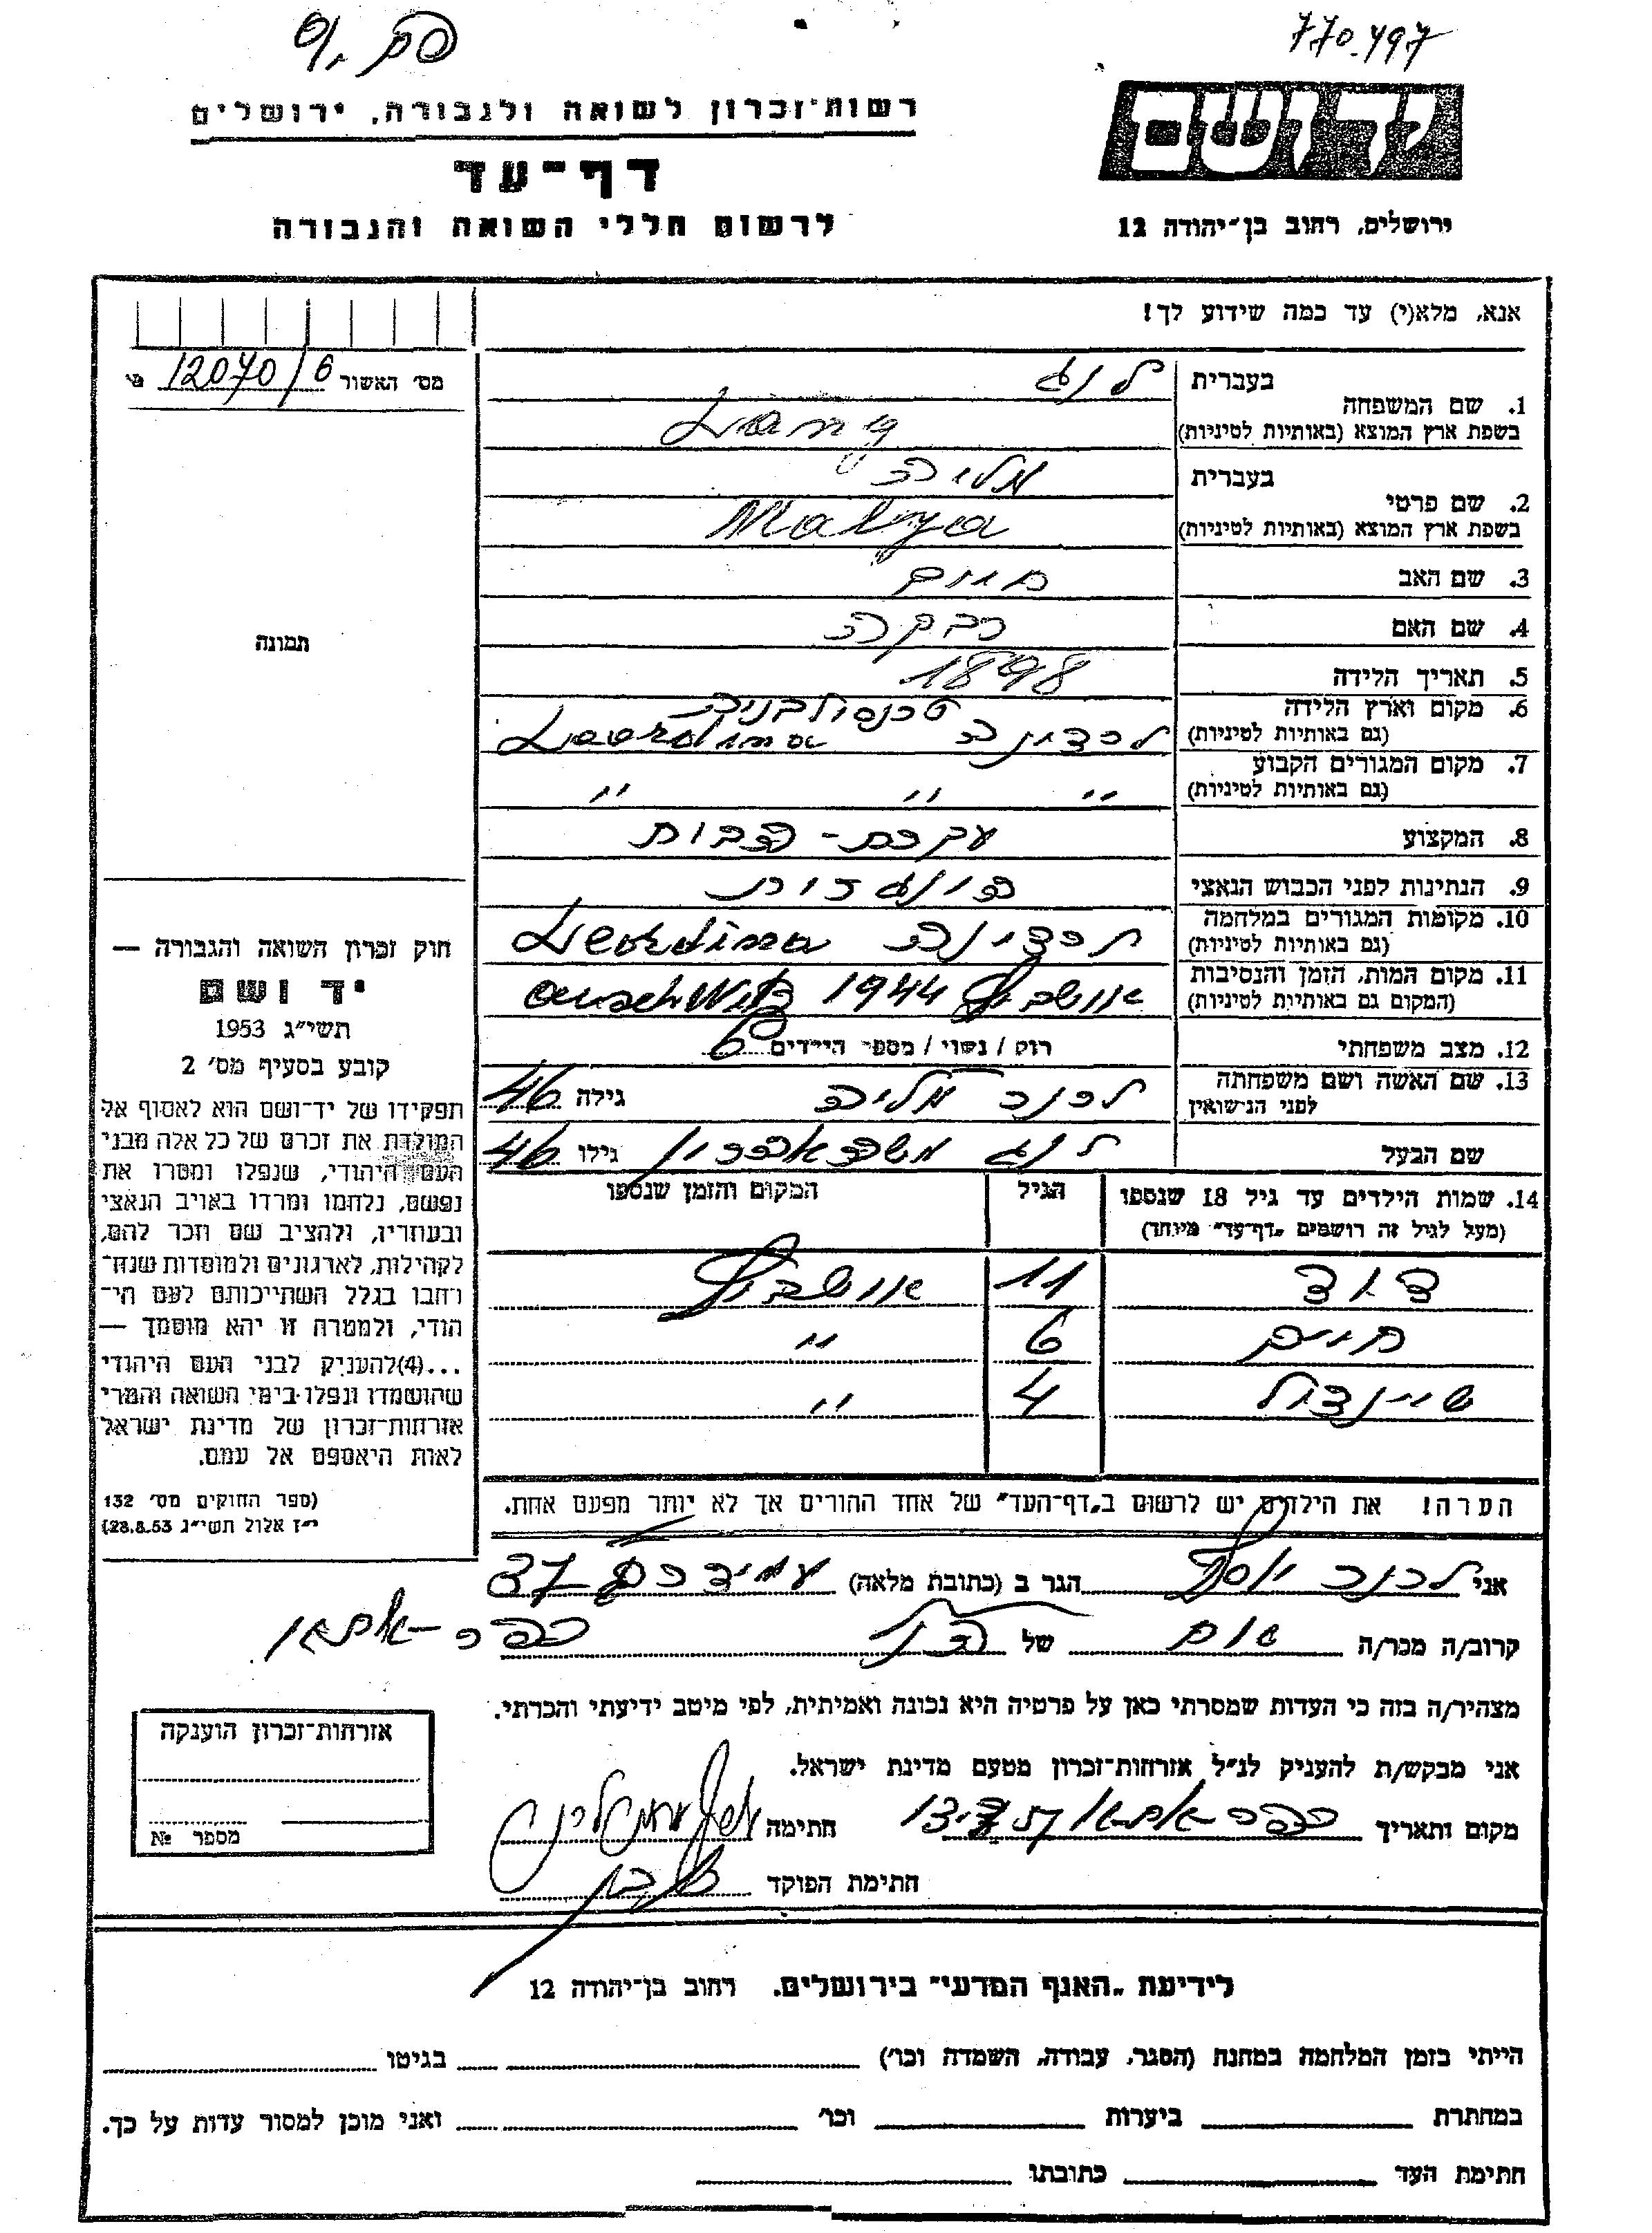 770.497
יד ושם
רשות־זכרון לשואה ולגבורה, ירושלים
דף־עד
לרשום חללי השואה והגבורה
ירושלים, רחוב בן־יהודה 12
אנא, מלא(י) עד כמה שידוע לך!
מס׳ האשור 12070/6
1. שם המשפחה
בעברית לנג
בשפת ארץ המוצא (באותיות לטיניות) Lang
2. שם פרטי
בעברית מליה
בשפת ארץ המוצא (באותיות לטיניות) Malya
3. שם האב חיים
4. שם האם רבקה
5. תאריך הלידה 1898
6. מקום וארץ הלידה טרנסולבניה
(גם באותיות לטיניות) לרדינה Leordina
7. מקום המגורים הקבוע
(גם באותיות לטיניות) " " "
8. המקצוע עקרת-הבית
9. הנתינות לפני הכבוש הנאצי הונגרית
10. מקומות המגורים במלחמה
(גם באותיות לטיניות) לרדינה Leordina
11. מקום המות, הזמן והנסיבות
(המקום גם באותיות לטיניות) אושביץ 1944 auschwitz
12. מצב משפחתי רוק / נשוי / מספר הילדים 6
13. שם האשה ושם משפחתה
לפני הנישואין לרנר מליה גילה 46
שם הבעל לנג משה אהרון גילו 46
14. שמות הילדים עד גיל 18 שנספו
(מעל לגיל זה רושמים „דף־עד״ מיוחד)
הגיל
המקום והזמן שנספו
דוד 11 אושביץ
חיים 6 "
שיינדול 4 "
הערה! את הילדים יש לרשום ב„דף־העד״ של אחד ההורים אך לא יותר מפעם אחת.
תמונה
חוק זכרון השואה והגבורה —
יד ושם
תשי״ג 1953
קובע בסעיף מס׳ 2
תפקידו של יד־ושם הוא לאסוף אל
המולדת את זכרם של כל אלה מבני
העם היהודי, שנפלו ומסרו את
נפשם, נלחמו ומרדו באויב הנאצי
ובעוזריו, ולהציב שם וזכר להם,
לקהילות, לארגונים ולמוסדות שנח־
רחבו בגלל השתייכותם לעם הי־
הודי, ולמטרה זו יהא מוסמך —
...(4)להעניק לבני העם היהודי
שהושמדו ונפלו בימי השואה והמרי
אזרחות־זכרון של מדינת ישראל
לאות היאספם אל עמם.
(ספר החוקים מס׳ 132
י״ז אלול תשי״ג 28.8.53)
אני לרנר יוסף הגר ב (כתובת מלאה) עמידר 37
קרוב/ה מכר/ה של כפר-אתא
מצהיר/ה בזה כי העדות שמסרתי כאן על פרטיה היא נכונה ואמיתית, לפי מיטב ידיעתי והכרתי.
אני מבקש/ת להעניק לנ״ל אזרחות־זכרון מטעם מדינת ישראל.
מקום ותאריך כפר אתא חתימה
חתימת הפוקד
אזרחות־זכרון הוענקה
מספר №
לידיעת „האגף המדעי״ בירושלים. רחוב בן־יהודה 12
הייתי בזמן המלחמה במחנה (הסגר, עבודה, השמדה וכו׳) בגיטו
במחתרת ביערות וכו׳ ואני מוכן למסור עדות על כך.
חתימת העד כתובתו